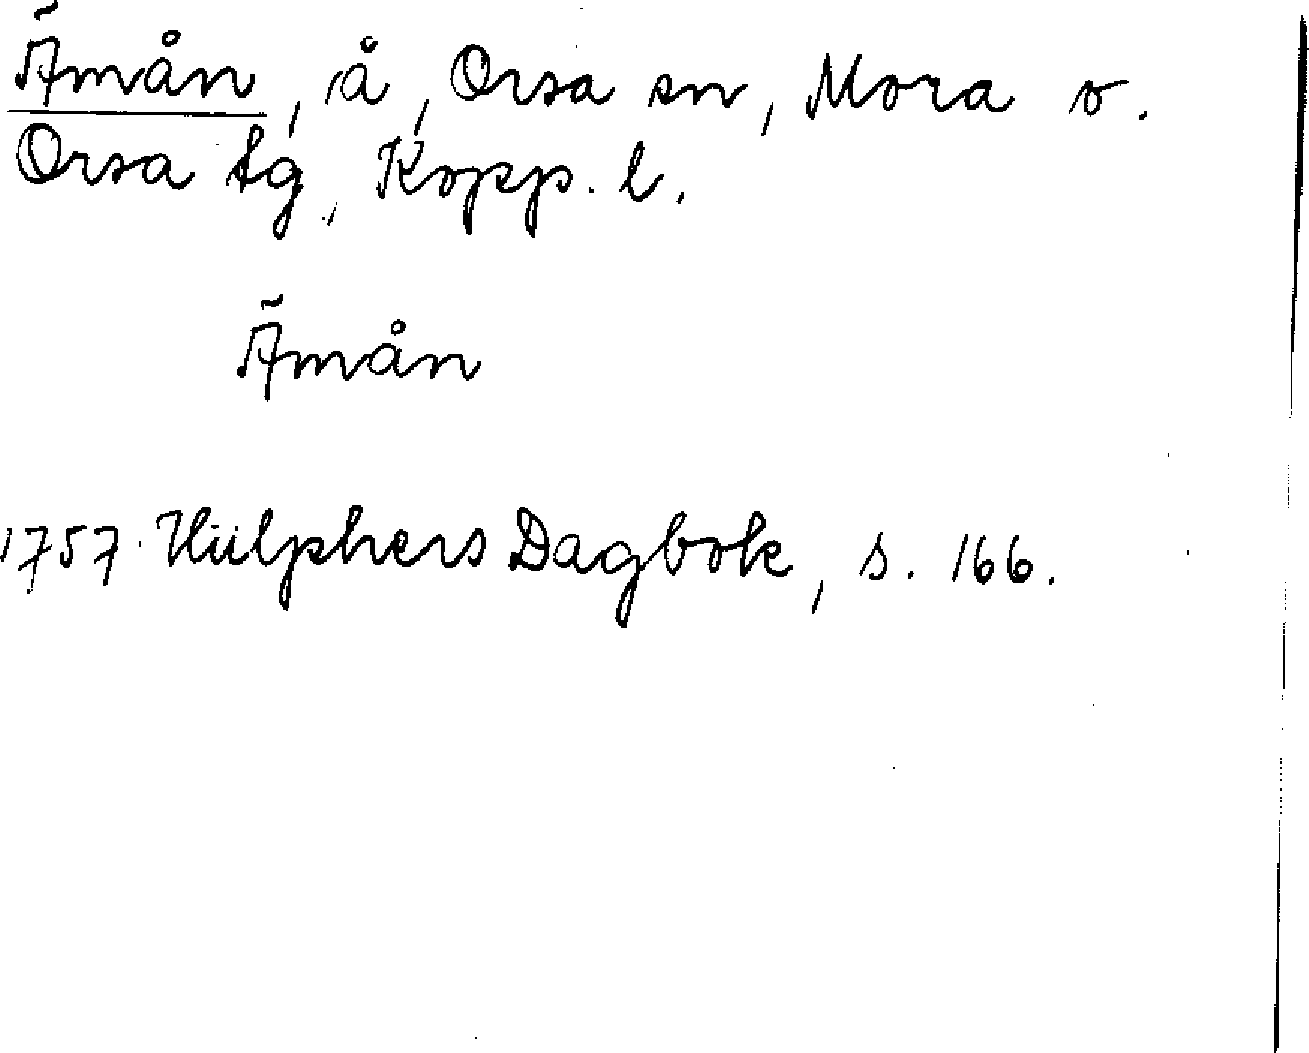 Ämån, å, Orsa sn, Mora o.
Orsa tg, Kopp. l.
Ämån
1757 Hülphers Dagbok, s. 166.